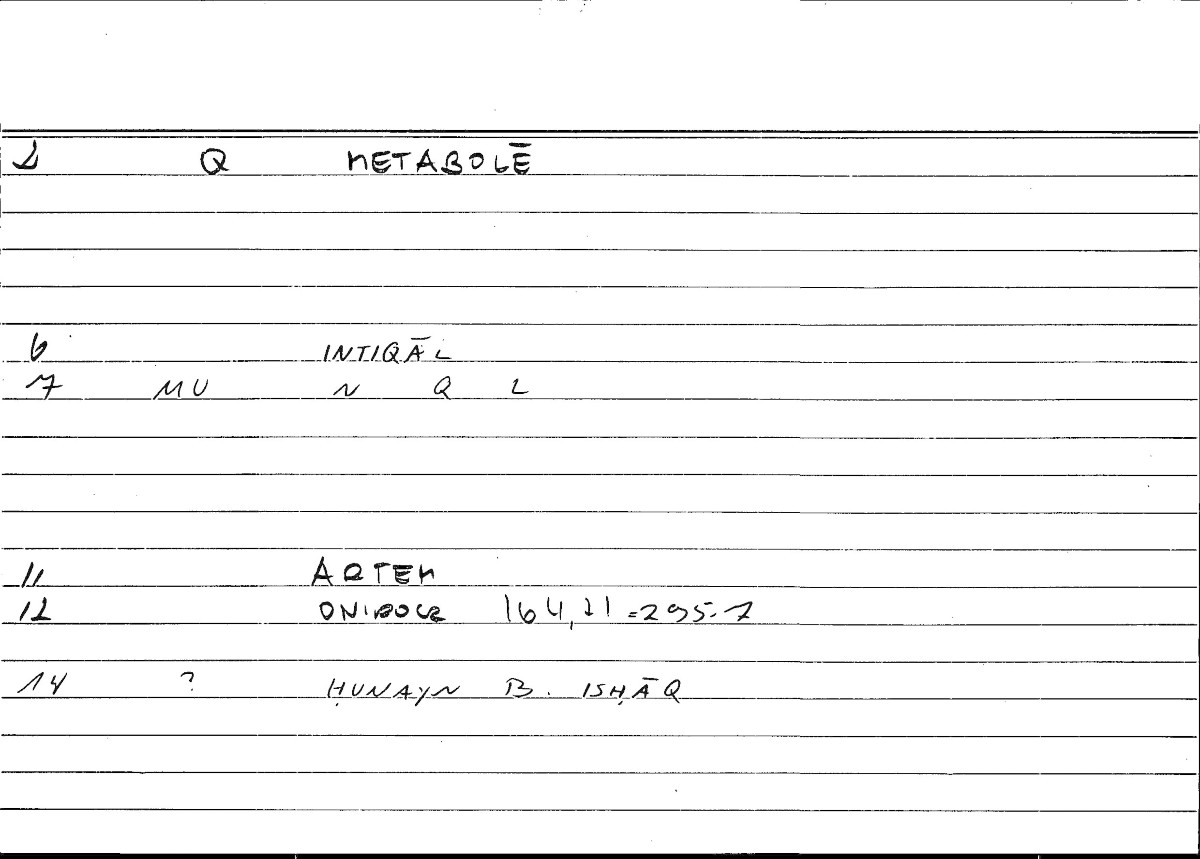 1 Q METABOLĒ
6 INTIQĀL
7 MU N Q L
11 ARTEM
12 ONIROCR 164,21=295.7
14 ? ḤUNAYN B. ISḤĀQ